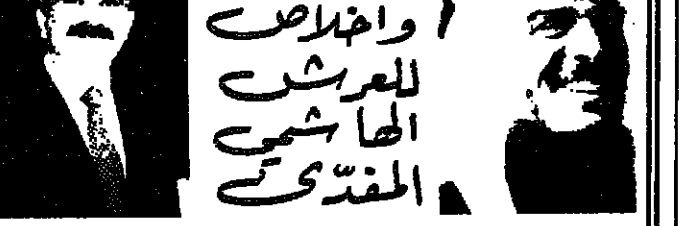 واخلاص
للعرش
الهاشمي
المفدّى